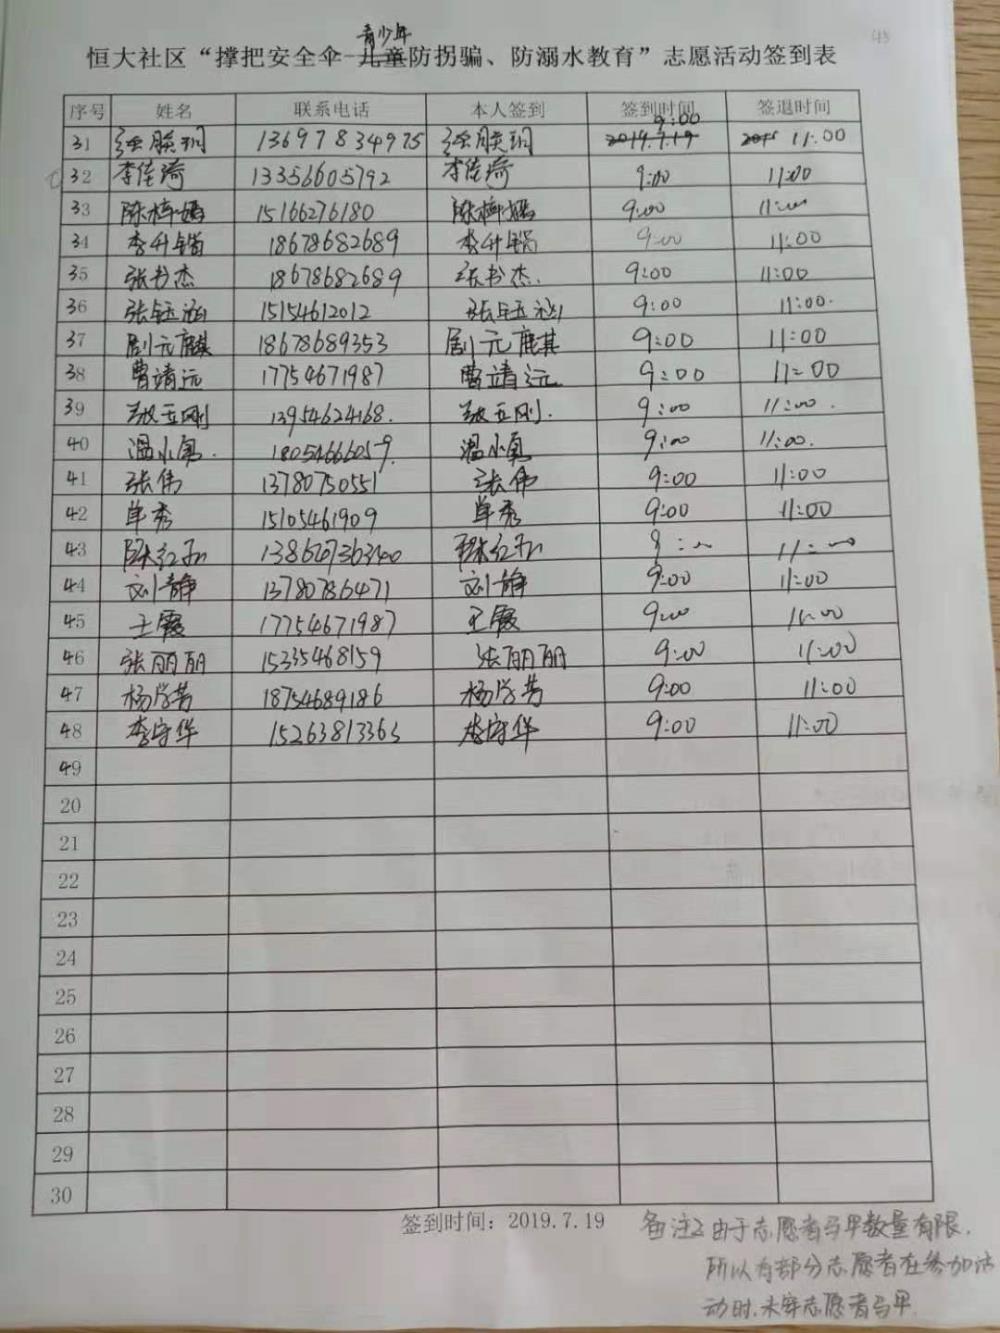 48
青少年
恒大社区“撑把安全伞-儿童防拐骗、防溺水教育”志愿活动签到表
序号 姓名 联系电话 本人签到 签到时间 签退时间
31 13697834975 9:00 2019.7.19 11:00
32 李佳琦 13356605792 李佳琦 9:00 11:00
33 陈梓嫣 15166276180 陈梓嫣 9:00 11:00
34 李升锴 18678682689 李升锴 9:00 11:00
35 张书杰 18678682689 张书杰. 9:00 11:00
36 张钰涵 15154612012 张钰涵 9:00 11:00.
37 剧元麒 18678689353 剧元麒 9:00 11:00
38 曹靖远 17754671987 曹靖远 9:00 11:00
39 13954624168. 9:00 11:00.
40 温小勇. 18054666059. 温小勇 9:00 11:00.
41 张伟 13780750551 张伟 9:00 11:00
42 单秀 15105461909 单秀 9:00 11:00
43 9:00 11:00
44 刘静 13780786471 刘静 9:00 11:00
45 王霞 17754671987 王霞 9:00 11:00
46 张丽丽 15335468159 张丽丽 9:00 11:00
47 杨学芳 18754689186 杨学芳 9:00 11:00
48 李守华 15263813363 李守华 9:00 11:00
49
20
21
22
23
24
25
26
27
28
29
30
签到时间：2019.7.19
备注：由于志愿者马甲数量有限，
所以有部分志愿者在参加活
动时，未穿志愿者马甲.